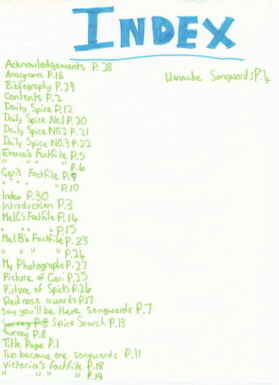 INDEX
Acknowledgements P.28
Anagrams P.16
Bibliography P.29
Contents P.2
Daily Spice P.12
Daily Spice No.1 P.20
Daily Spice NO.2 P.21
Daily Spice NO.3 P.22
Emma's Factfile P.5
" " " P.6
Geri's Factfile P.9
" " " P.10
Index P.30
Introduction P.3
Mel C's Factfile P.14
" " " P.15
Mel B's Factfile P.23
" " " P.24
My Photographs P.27
Picture of Geri P.25
Picture of Spices P.26
Red nose awards P.17
Say you'll be there songwords P.7
Spice Search P.13
Survey P.8
Title Page P.1
Two become one songwords P.11
Victoria's factfile P.18
" " " P.19
Wannabe Songwords P.4